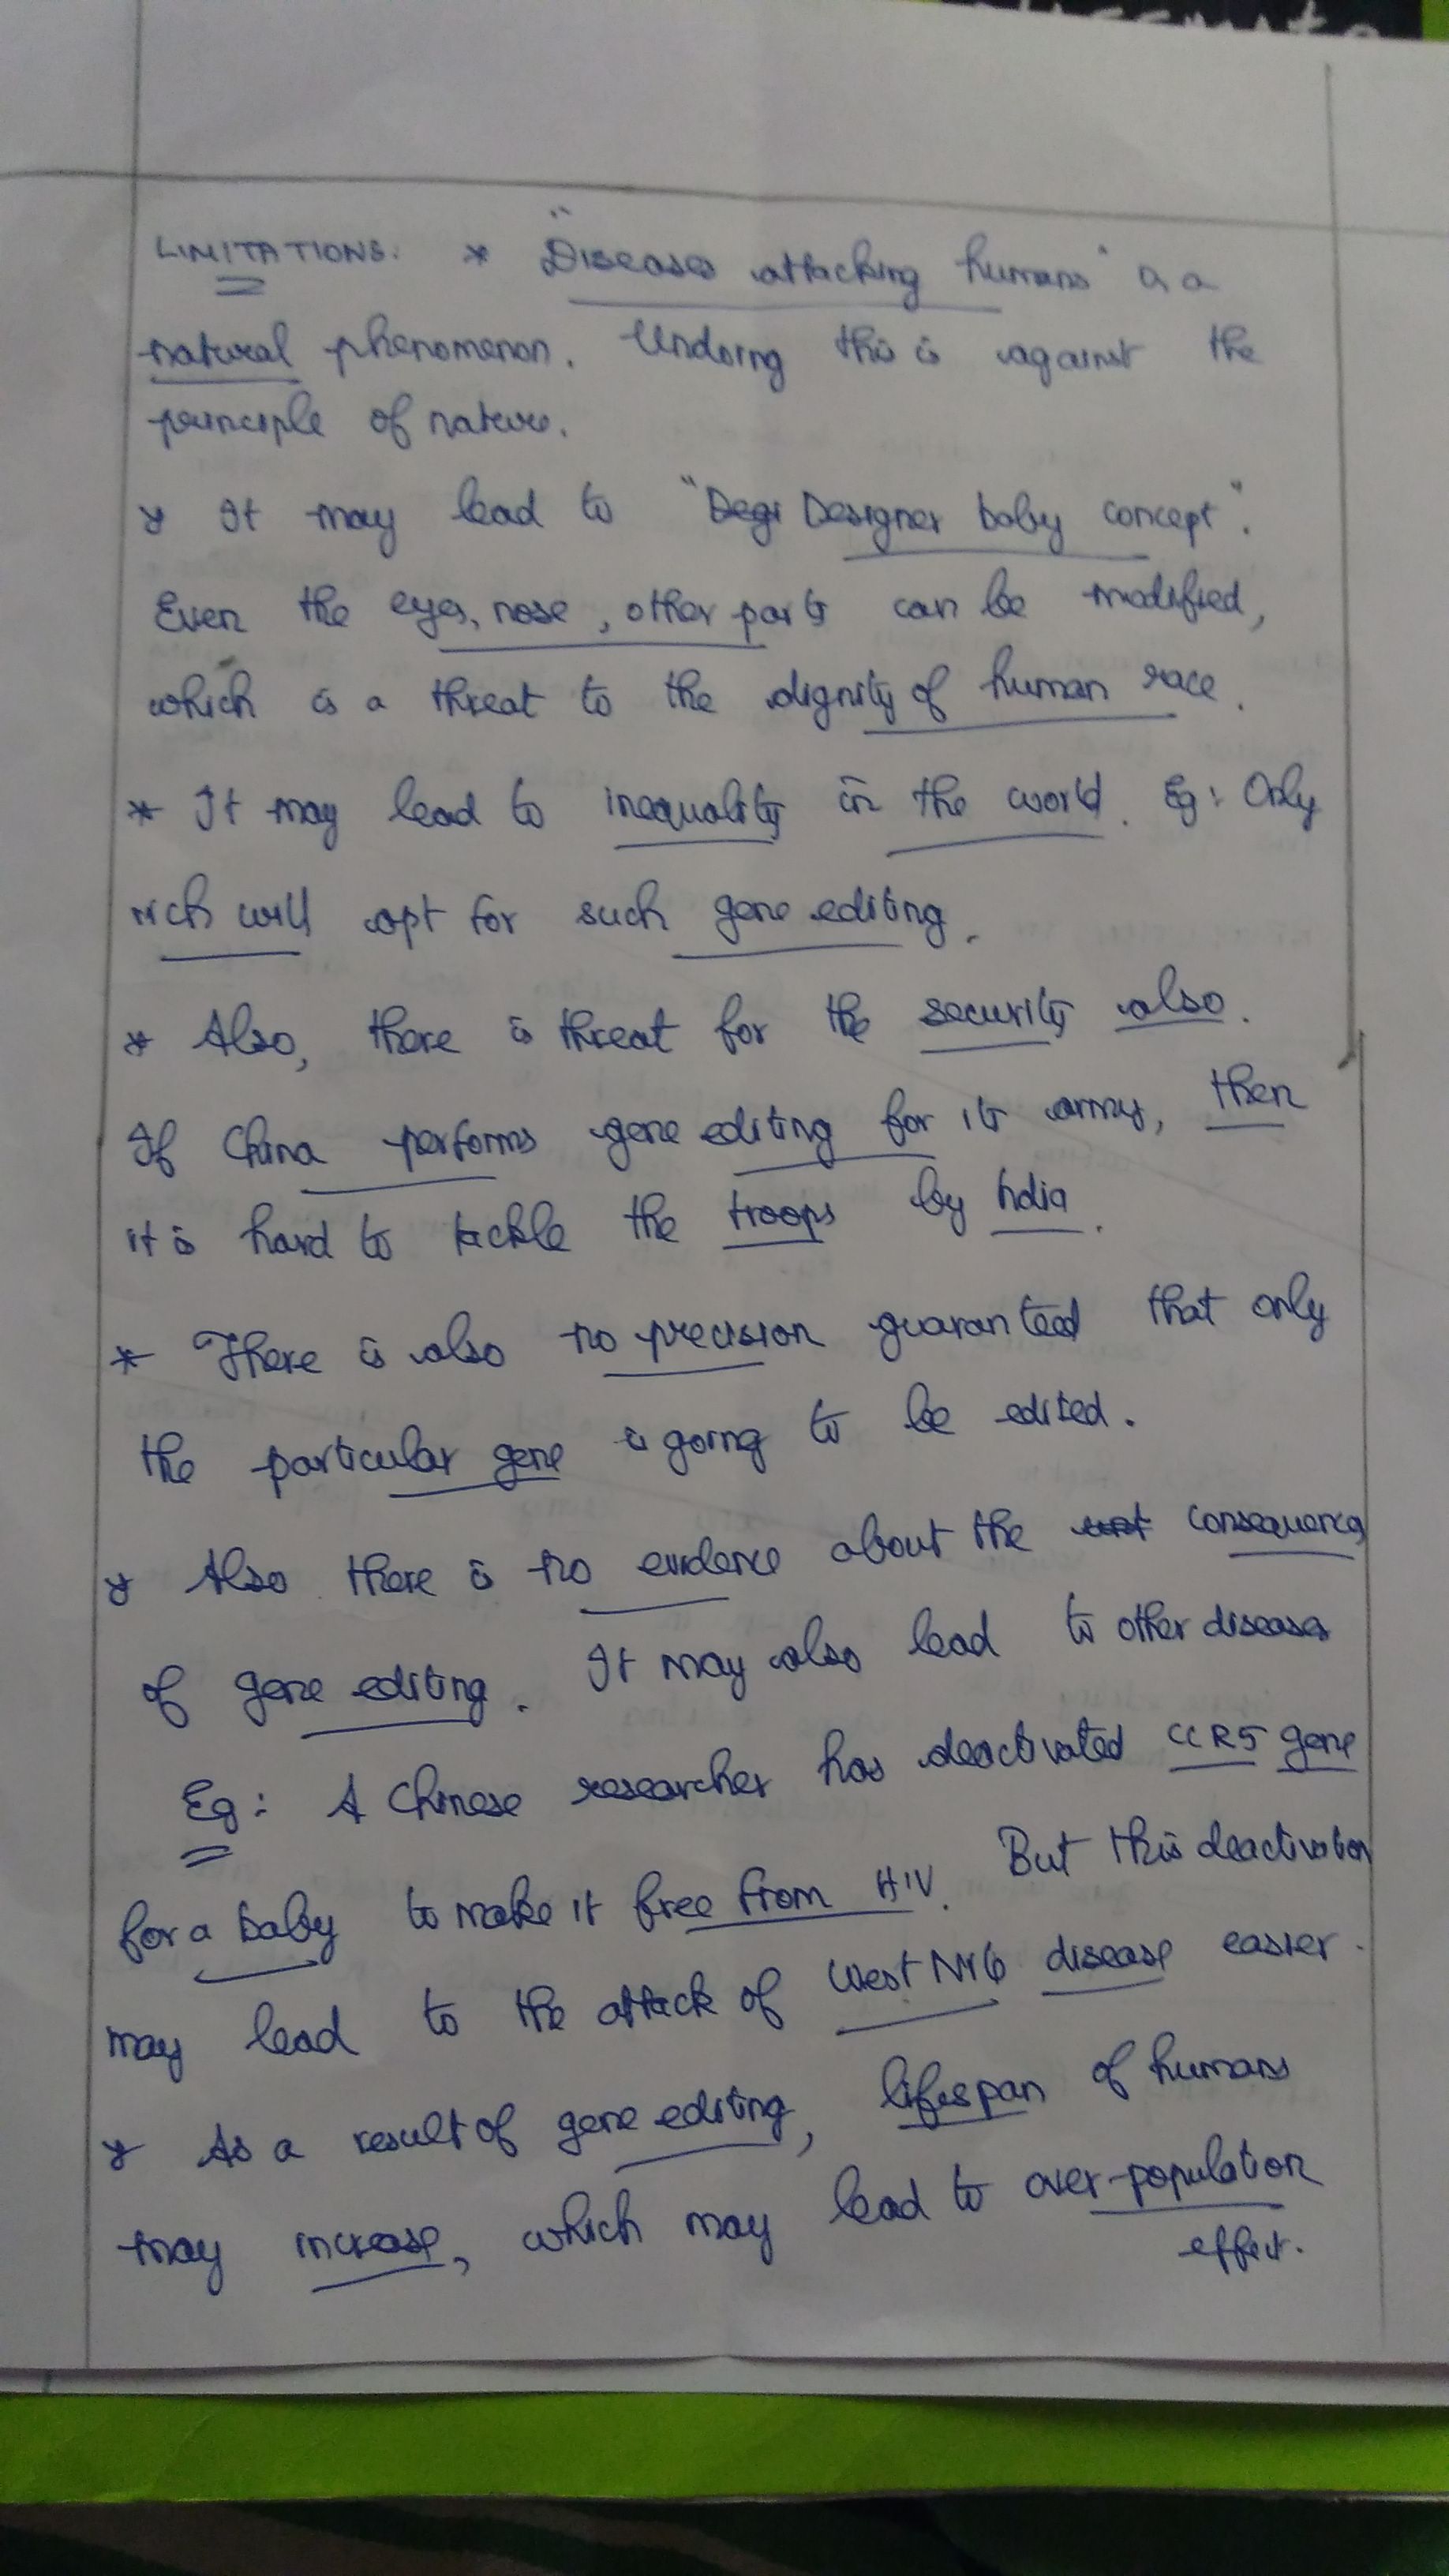 LIMITATIONS. * "Diseases attacking humans" is a
natural phenomenon. Undoing this is against the
principle of nature.
* It may lead to "Degi Designer baby concept".
Even the eyes, nose, other parts can be modified,
which is a threat to the dignity of human race.
* It may lead to inequality in the world. Eg: Only
rich will opt for such gene editing.
* Also, there is threat for the security also.
If China performs gene editing for its army, then
it is hard to tackle the troops by India.
* There is also no precision guaranteed that only
the particular gene is going to be edited.
* Also there is no evidence about the consequences
of gene editing. It may also lead to other diseases
Eg: A Chinese researcher has deactivated CCR5 gene
for a baby to make it free from HIV. But this deactivation
may lead to the attack of West Nile disease easier.
* As a result of gene editing, lifespan of humans
may increase, which may lead to over-population
effect.